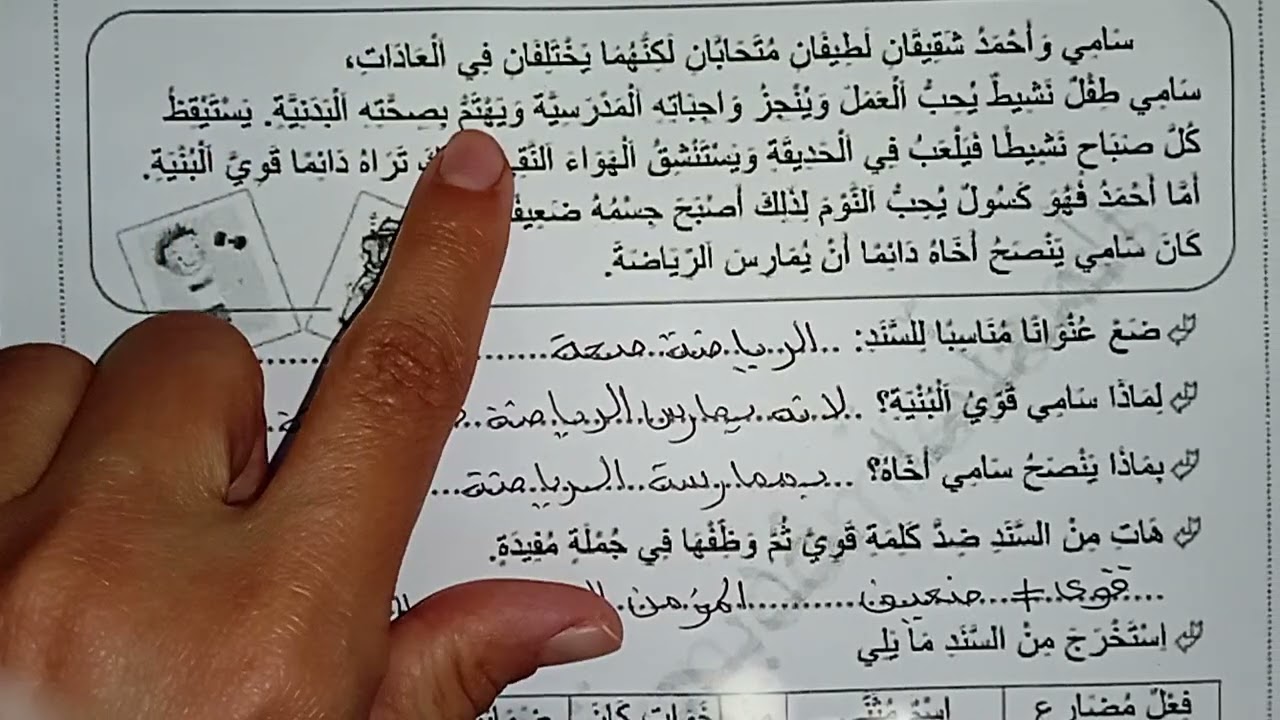 سَامِي وَأَحْمَدُ شَقِيقَانِ لَطِيفَانِ مُتَحَابَّانِ لَكِنَّهُمَا يَخْتَلِفَانِ فِي اَلْعَادَاتِ،
سَامِي طِفْلٌ نَشِيطٌ يُحِبُّ اَلْعَمَلَ وَيُنْجِزُ وَاجِبَاتِهِ اَلْمَدْرَسِيَّةَ وَيَهْتَمُّ بِصِحَّتِهِ اَلْبَدَنِيَّةِ. يَسْتَيْقِظُ
كُلَّ صَبَاحٍ نَشِيطًا فَيَلْعَبُ فِي اَلْحَدِيقَةِ وَيَسْتَنْشِقُ اَلْهَوَاءَ تَرَاهُ دَائِمًا قَوِيَّ اَلْبُنْيَةِ.
أَمَّا أَحْمَدُ فَهُوَ كَسُولٌ يُحِبُّ اَلنَّوْمَ لِذَلِكَ أَصْبَحَ جِسْمُهُ
كَانَ سَامِي يَنْصَحُ أَخَاهُ دَائِمًا أَنْ يُمَارِسَ اَلرِّيَاضَةَ.
ضَعْ عُنْوَانًا مُنَاسِبًا لِلسَّنَدِ: ..الرياضة صحة......
لِمَاذَا سَامِي قَوِيُّ اَلْبُنْيَةِ؟ ..لانه يمارس الرياضة..
بِمَاذَا يَنْصَحُ سَامِي أَخَاهُ؟ ...بممارسة الرياضة...
هَاتِ مِنْ السَّنَدِ ضِدَّ كَلِمَةِ قَوِيٌّ ثُمَّ وَظِّفْهَا فِي جُمْلَةٍ مُفِيدَةٍ.
....قوي ≠ ضعيف.......... المؤمن
اِسْتَخْرَجَ مِنْ السَّنَدِ مَا يَلِي
فِعْلٌ مُضَارِع اِسْمٌ مُثَنَّى